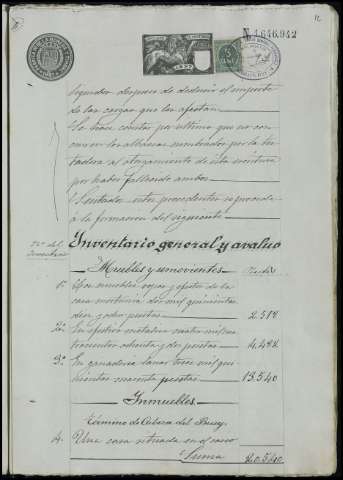 N.4.646.942
12
legados despues de deducir el importe
de las cargas que las afectan.
Se hace constar por ultimo que no con-
curren los albaceas nombrados por la tes-
tadora al otorgamiento de esta escritura
por haber fallecido ambos.
Sentados estos precedentes se procede
á la formacion del siguiente
Inventario general y avaluo
Nº del
Inventario
Muebles y semovientes
1º Los muebles ropas y efectos de la
casa mortuoria dos mil quinientas
diez y ocho pesetas 2518
2º En efectivo metalico cuatro mil cua-
trocientas ochenta y dos pesetas 4.482
3º En ganaderia lanar trece mil qui-
nientas cuarenta pesetas 13.540
Inmuebles
Término de Cabeza del Buey.
4º Una casa situada en el casco
Suma 20.540